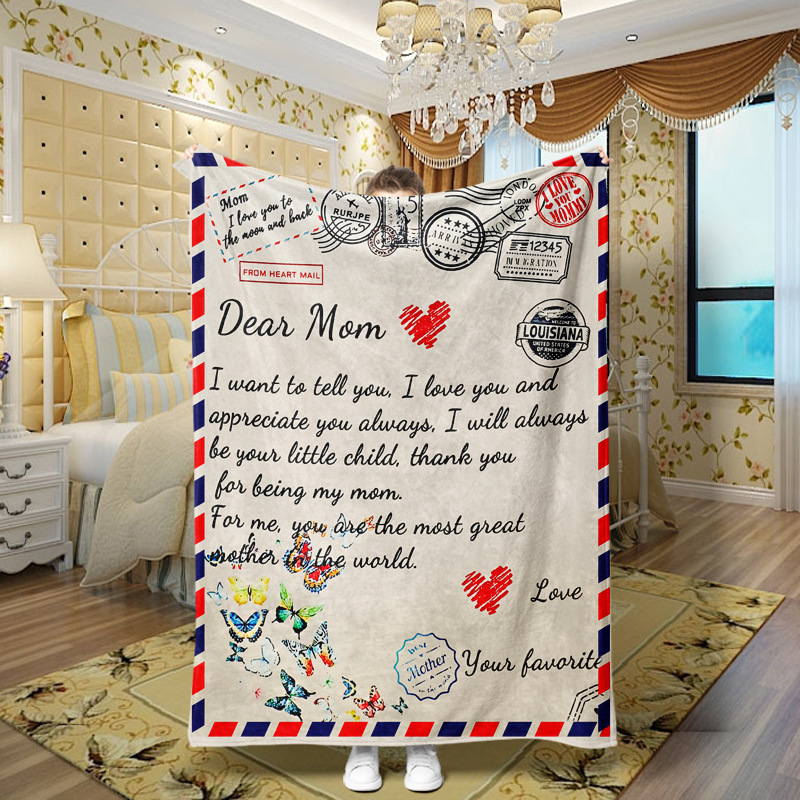 Mom
I love you to
the moon and back
RURJPE
15
ARRIV
LONDON
LOOM
ZPX
I LOVE
YOU
MOMMY
12345
IMMIGRATION
FROM HEART MAIL
Dear Mom
WELCOME TO
LOUISIANA
UNITED STATES
OF AMERICA
I want to tell you, I love you and
appreciate you always, I will always
be your little child, thank you
for being my mom.
For me, you are the most great
mother in the world.
Love
BEST
Mother
in the world
Your favorite